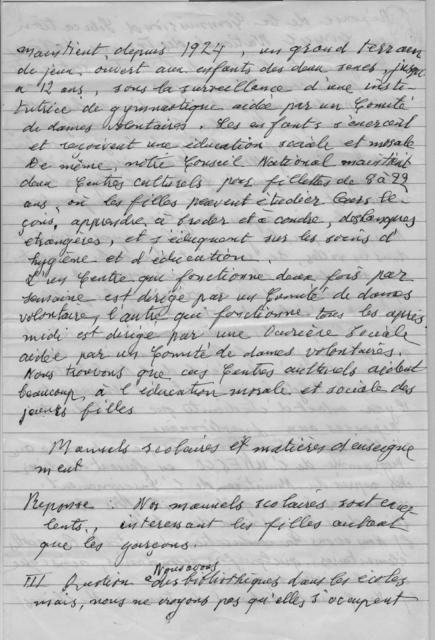 maintient, depuis 1924, un grand terrain
de jeux, ouvert aux enfants des deux sexes, jusqu'
a 12 ans, sous la surveillance d'une insti-
tutrice de gymnastique aidée par un Comité
de dames volontaires. Les enfants s'exercent
et reçoivent une éducation sociale et morale
De même, notre Conseil National maintient
deux Centres culturels pour fillettes de 8 à 22
ans, où les filles peuvent étudier leurs le-
çons, apprendre, à broder et a coudre, des langues
étrangères, et s'éduquent sur les soins d'
hygiène et d'éducation.
L'un Centre qui fonctionne deux fois par
semaine est dirigé par un Comité de dames
volontaire, l'autre qui fonctionne tous les après
midi est dirigé par une Ouvrière Sociale
aidée par un Comité de dames volontaires.
Nous trouvons que ces Centres culturels aident
beaucoup, à l'éducation morale et sociale des
jeunes filles
Manuels scolaires et matières d'enseigne
ment
Reponse : Nos manuels scolaires sont excel
lents, interessant les filles autant
que les garçons.
Nous avons
III Question des bibliothèques dans les écoles
mais, nous ne croyons pas qu'elles s'occupent